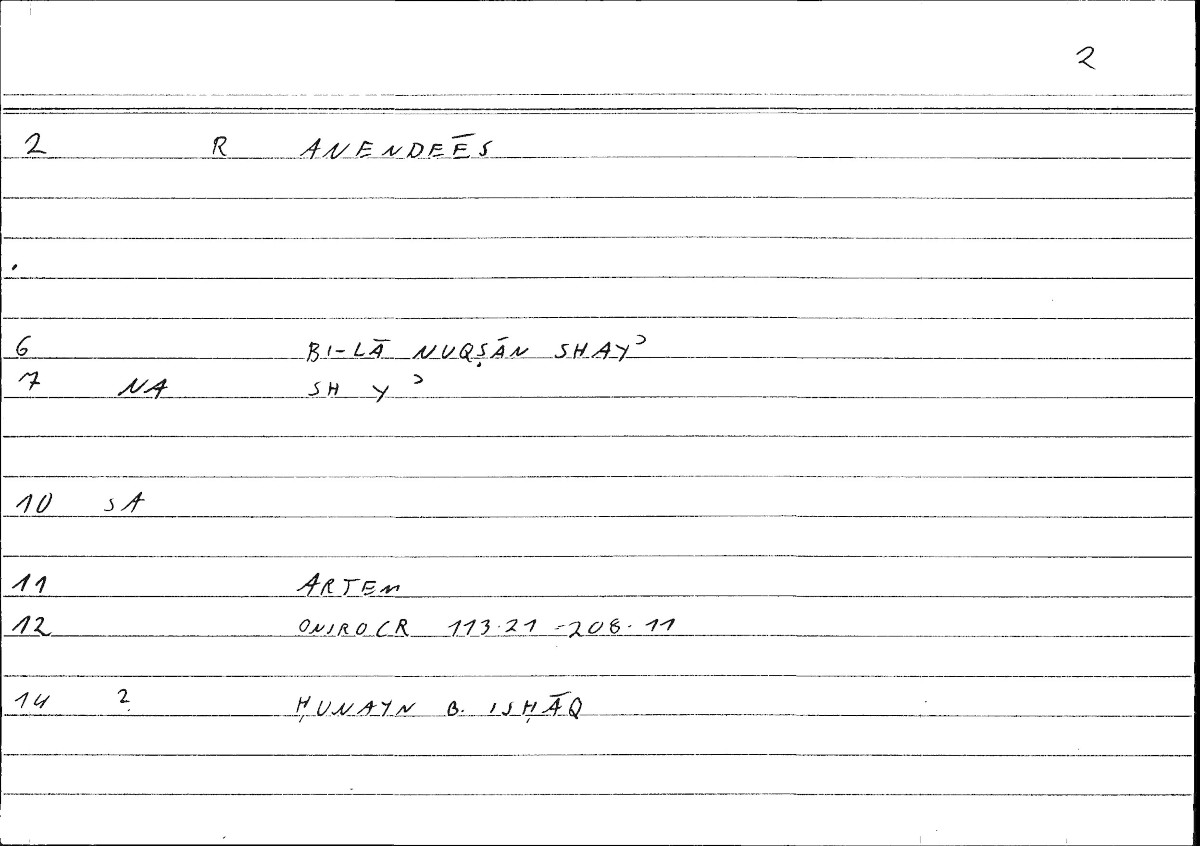 2
2 R ANENDEĒS
6 BI-LĀ NUQṢĀN SHAYʾ
7 NA SH Y ʾ
10 SA
11 ARTEM
12 ONIROCR 113.21-208.11
14 2 ḤUNAYN B. ISḤĀQ